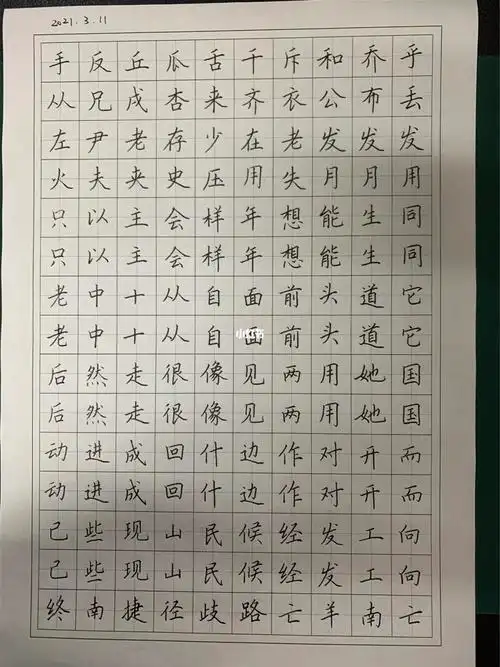 2021.3.11
手反丘瓜舌千斥和乔乎
从兄成杏来齐衣公布丢
左尹老存少在老发发发
火夫夹史压用失月月用
只以主会样年想能生同
只以主会样年想能生同
老中十从自面前头道它
老中十从自面前头道它
小红书
后然走很像见两用她国
后然走很像见两用她国
动进成回什边作对开而
动进成回什边作对开而
己些现山民候经发工向
己些现山民候经发工向
终南捷径歧路亡羊南亡